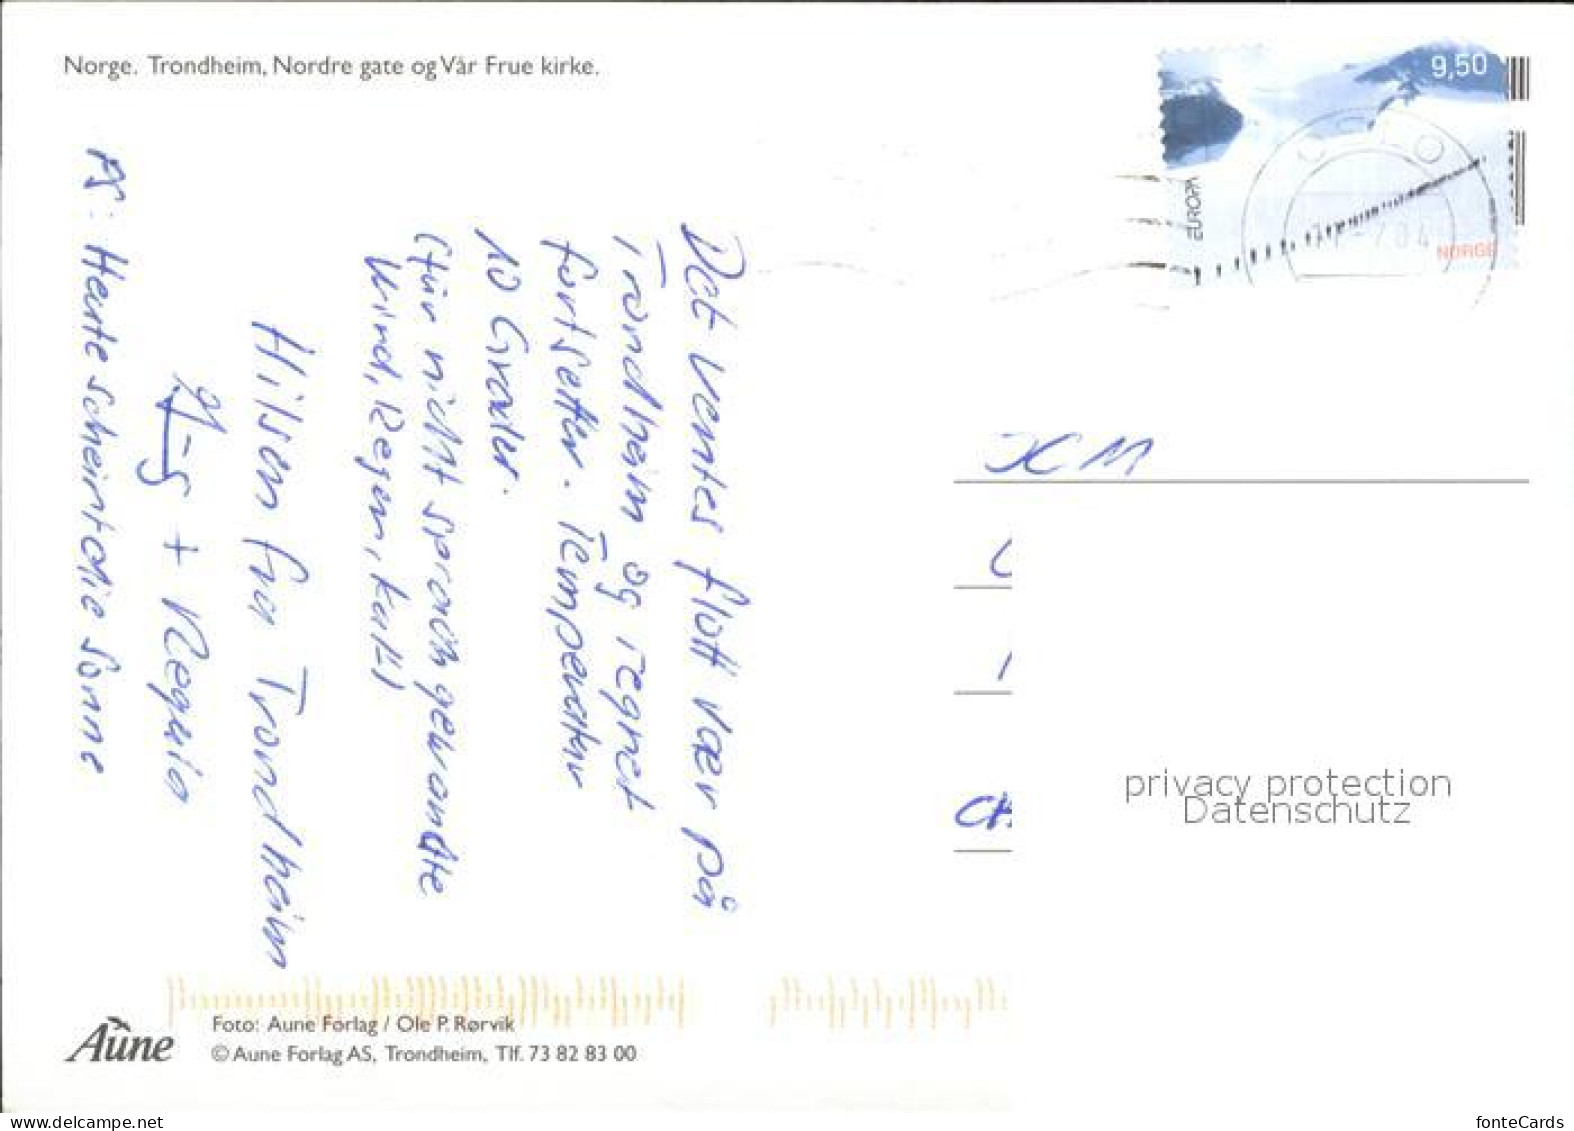 Norge. Trondheim, Nordre gate og Vår Frue kirke.
9,50
EUROPA
NORGE
Det ventes flott vær på
Trondheim og regnet
fortsetter. Temperatur
10 Grader.
(für nicht sprachgewandte
Wind, Regen, kalt)
Hilsen fra Trondheim
+ Regula
PS: Heute scheint die Sonne
privacy protection
Datenschutz
Aune
Foto: Aune Forlag / Ole P. Rørvik
© Aune Forlag AS, Trondheim, Tlf. 73 82 83 00
www.delcampe.net
fonteCards